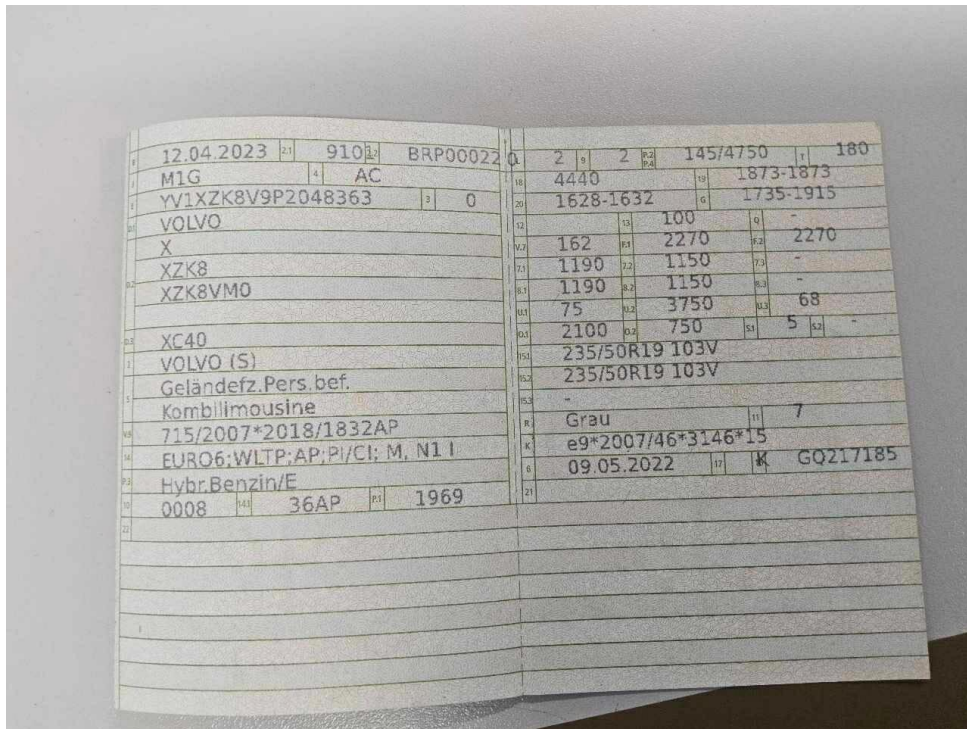 B 12.04.2023 2.1 9101 2.2 BRP00022 0
J M1G 4 AC
E YV1XZK8V9P2048363 3 0
D.1 VOLVO
X
D.2 XZK8
XZK8VM0
D.3 XC40
2 VOLVO (S)
5 Geländefz.Pers.bef.
Kombilimousine
V.9 715/2007*2018/1832AP
14 EURO6;WLTP;AP;PI/CI; M, N1 I
P.3 Hybr.Benzin/E
10 0008 14.1 36AP P.1 1969
22
L 2 9 2 P.2 P.4 145/4750 T 180
18 4440 19 1873-1873
20 1628-1632 G 1735-1915
12 13 100 Q -
V.7 162 F.1 2270 F.2 2270
7.1 1190 7.2 1150 7.3 -
8.1 1190 8.2 1150 8.3 -
U.1 75 U.2 3750 U.3 68
O.1 2100 O.2 750 S.1 5 S.2 -
15.1 235/50R19 103V
15.2 235/50R19 103V
15.3 -
R Grau 11 7
K e9*2007/46*3146*15
6 09.05.2022 17 K GQ217185
21